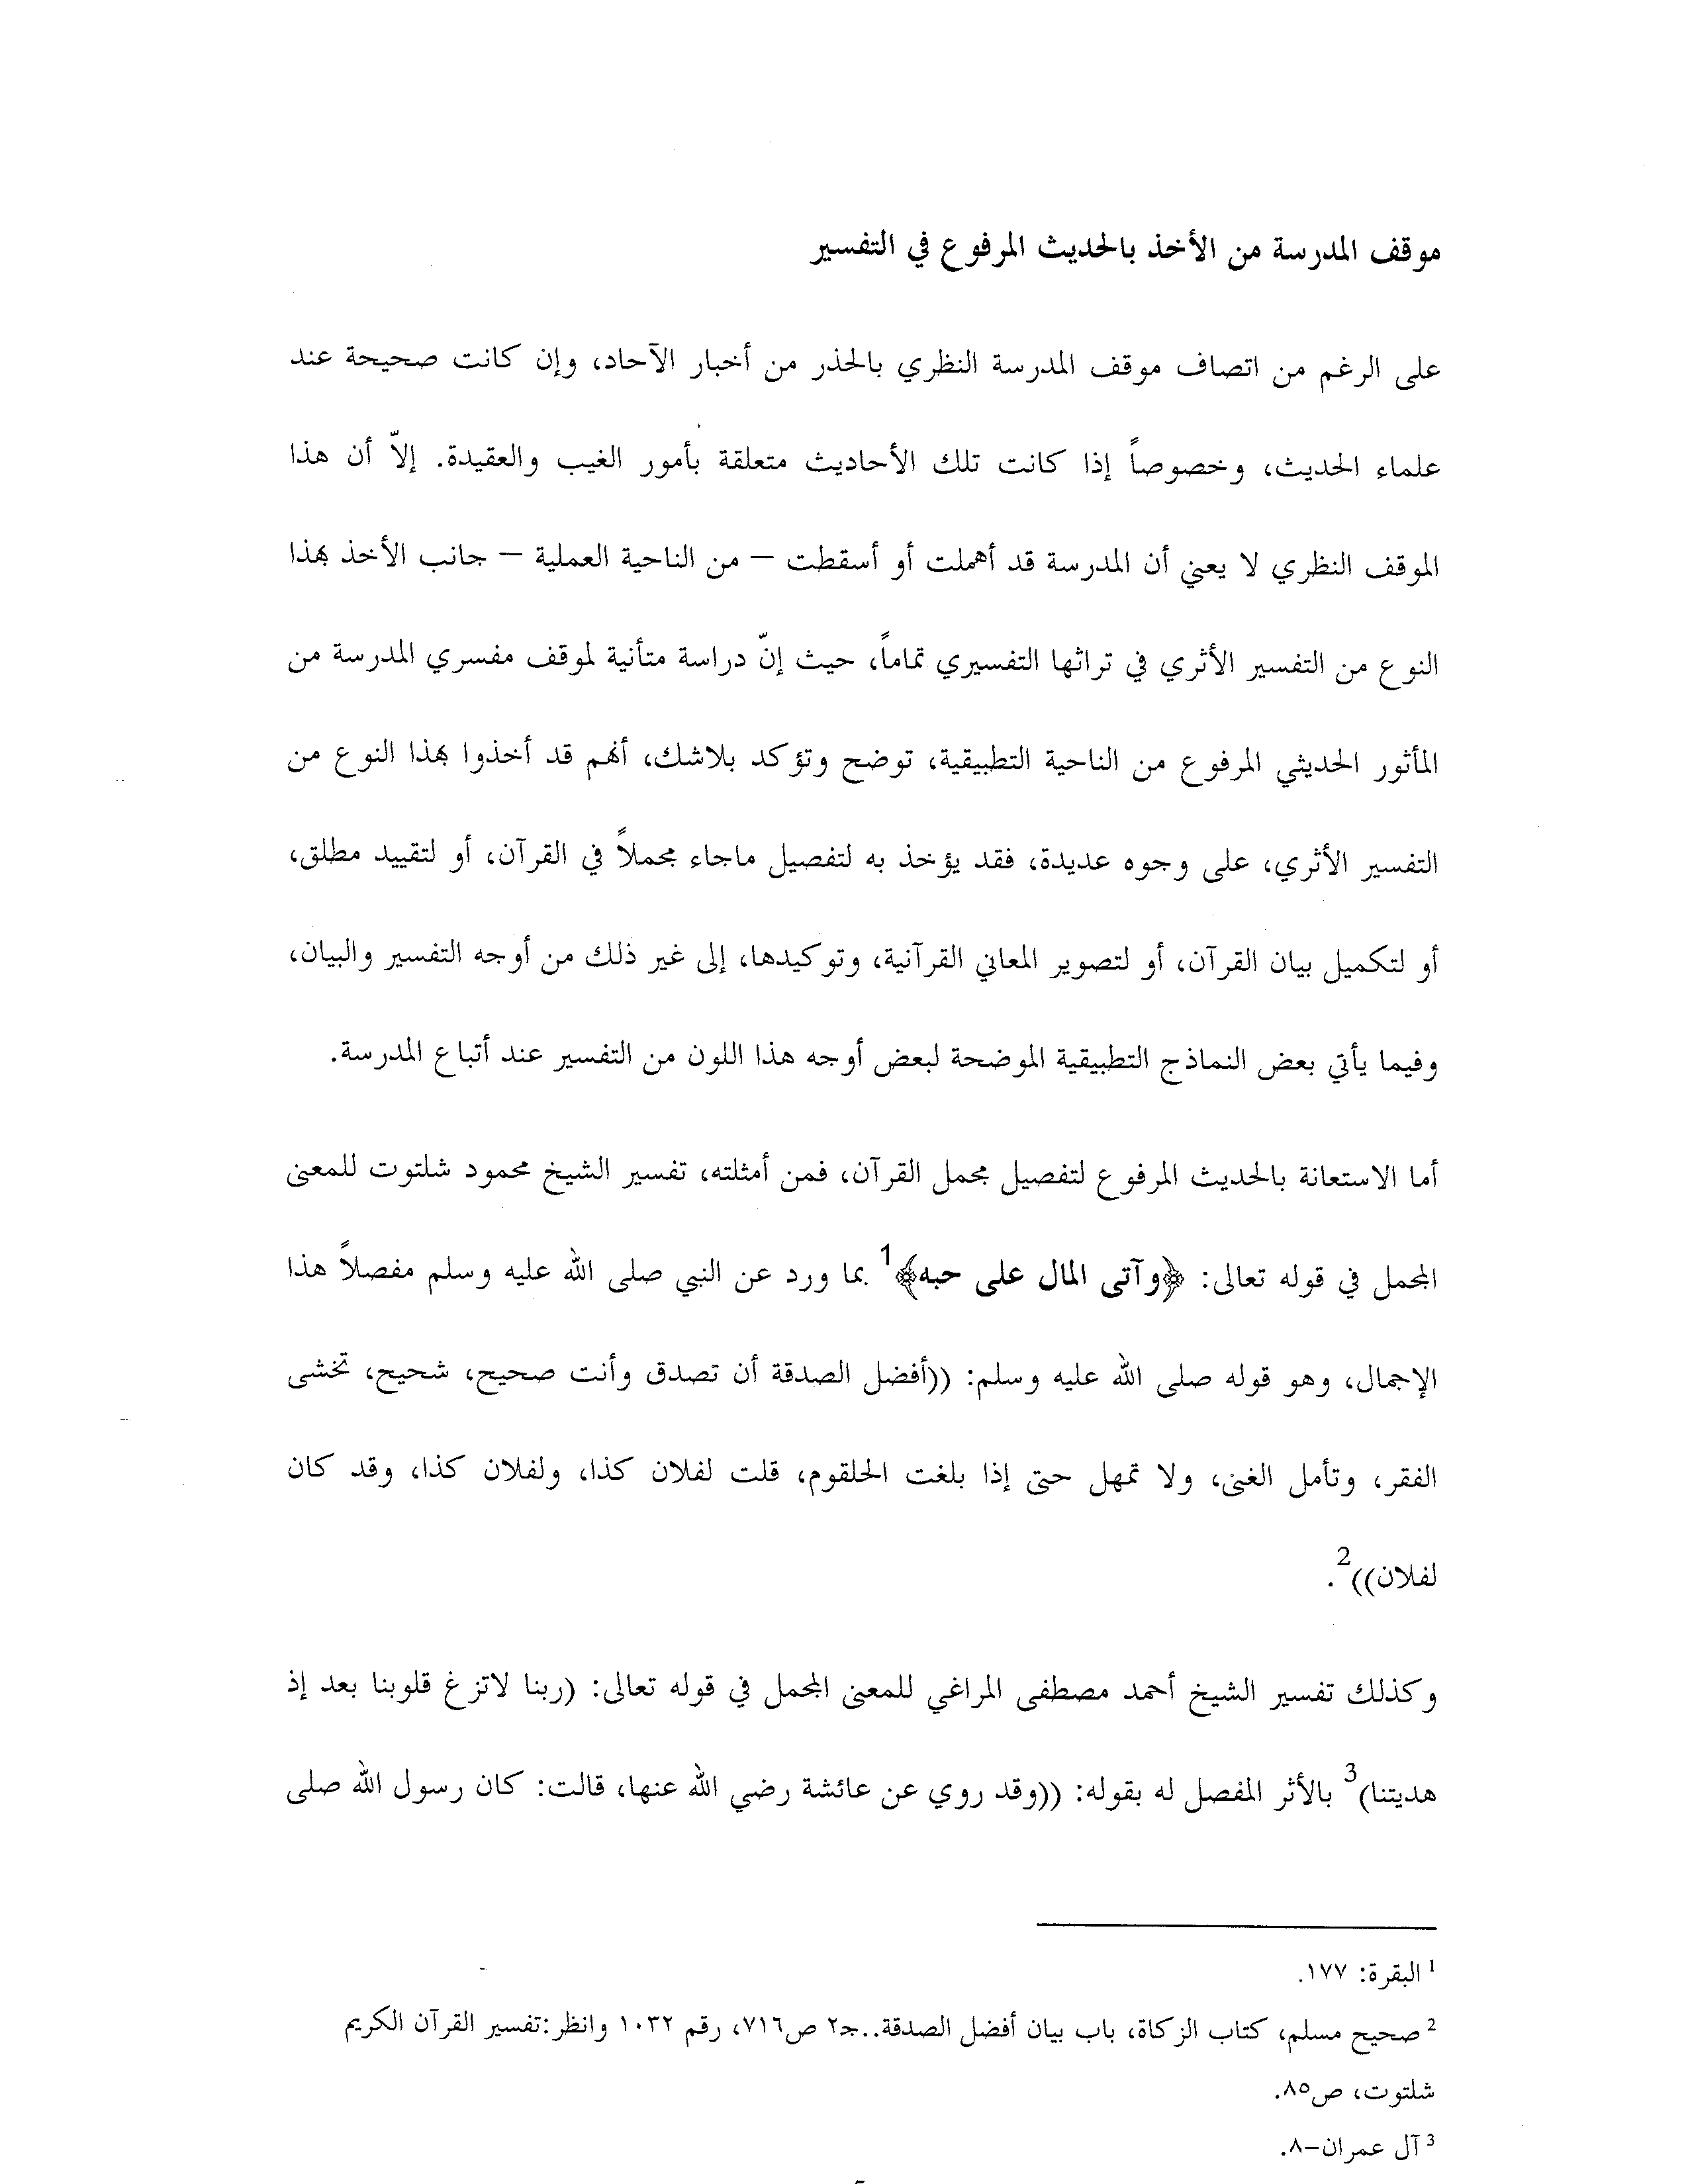 موقف المدرسة من الأخذ بالحديث المرفوع في التفسير
على الرغم من اتصاف موقف المدرسة النظري بالحذر من أخبار الآحاد، وإن كانت صحيحة عند
علماء الحديث، وخصوصاً إذا كانت تلك الأحاديث متعلقة بأمور الغيب والعقيدة. إلاّ أن هذا
الموقف النظري لا يعني أن المدرسة قد أهملت أو أسقطت – من الناحية العملية – جانب الأخذ بهذا
النوع من التفسير الأثري في تراثها التفسيري تماماً، حيث إنّ دراسة متأنية لموقف مفسري المدرسة من
المأثور الحديثي المرفوع من الناحية التطبيقية، توضح وتؤكد بلاشك، أنهم قد أخذوا بهذا النوع من
التفسير الأثري، على وجوه عديدة، فقد يؤخذ به لتفصيل ماجاء مجملاً في القرآن، أو لتقييد مطلق،
أو لتكميل بيان القرآن، أو لتصوير المعاني القرآنية، وتوكيدها، إلى غير ذلك من أوجه التفسير والبيان،
وفيما يأتي بعض النماذج التطبيقية الموضحة لبعض أوجه هذا اللون من التفسير عند أتباع المدرسة.
أما الاستعانة بالحديث المرفوع لتفصيل مجمل القرآن، فمن أمثلته، تفسير الشيخ محمود شلتوت للمعنى
المجمل في قوله تعالى: ﴿وآتى المال على حبه﴾1 بما ورد عن النبي صلى الله عليه وسلم مفصلاً هذا
الإجمال، وهو قوله صلى الله عليه وسلم: ((أفضل الصدقة أن تصدق وأنت صحيح، شحيح، تخشى
الفقر، وتأمل الغنى، ولا تمهل حتى إذا بلغت الحلقوم، قلت لفلان كذا، ولفلان كذا، وقد كان
لفلان))2.
وكذلك تفسير الشيخ أحمد مصطفى المراغي للمعنى المجمل في قوله تعالى: (ربنا لاتزغ قلوبنا بعد إذ
هديتنا)3 بالأثر المفصل له بقوله: ((وقد روي عن عائشة رضي الله عنها، قالت: كان رسول الله صلى
1 البقرة: ١٧٧.
2 صحيح مسلم، كتاب الزكاة، باب بيان أفضل الصدقة..جـ٢ ص٧١٦، رقم ١٠٣٢ وانظر:تفسير القرآن الكريم
شلتوت، ص٨٥.
3 آل عمران–٨.